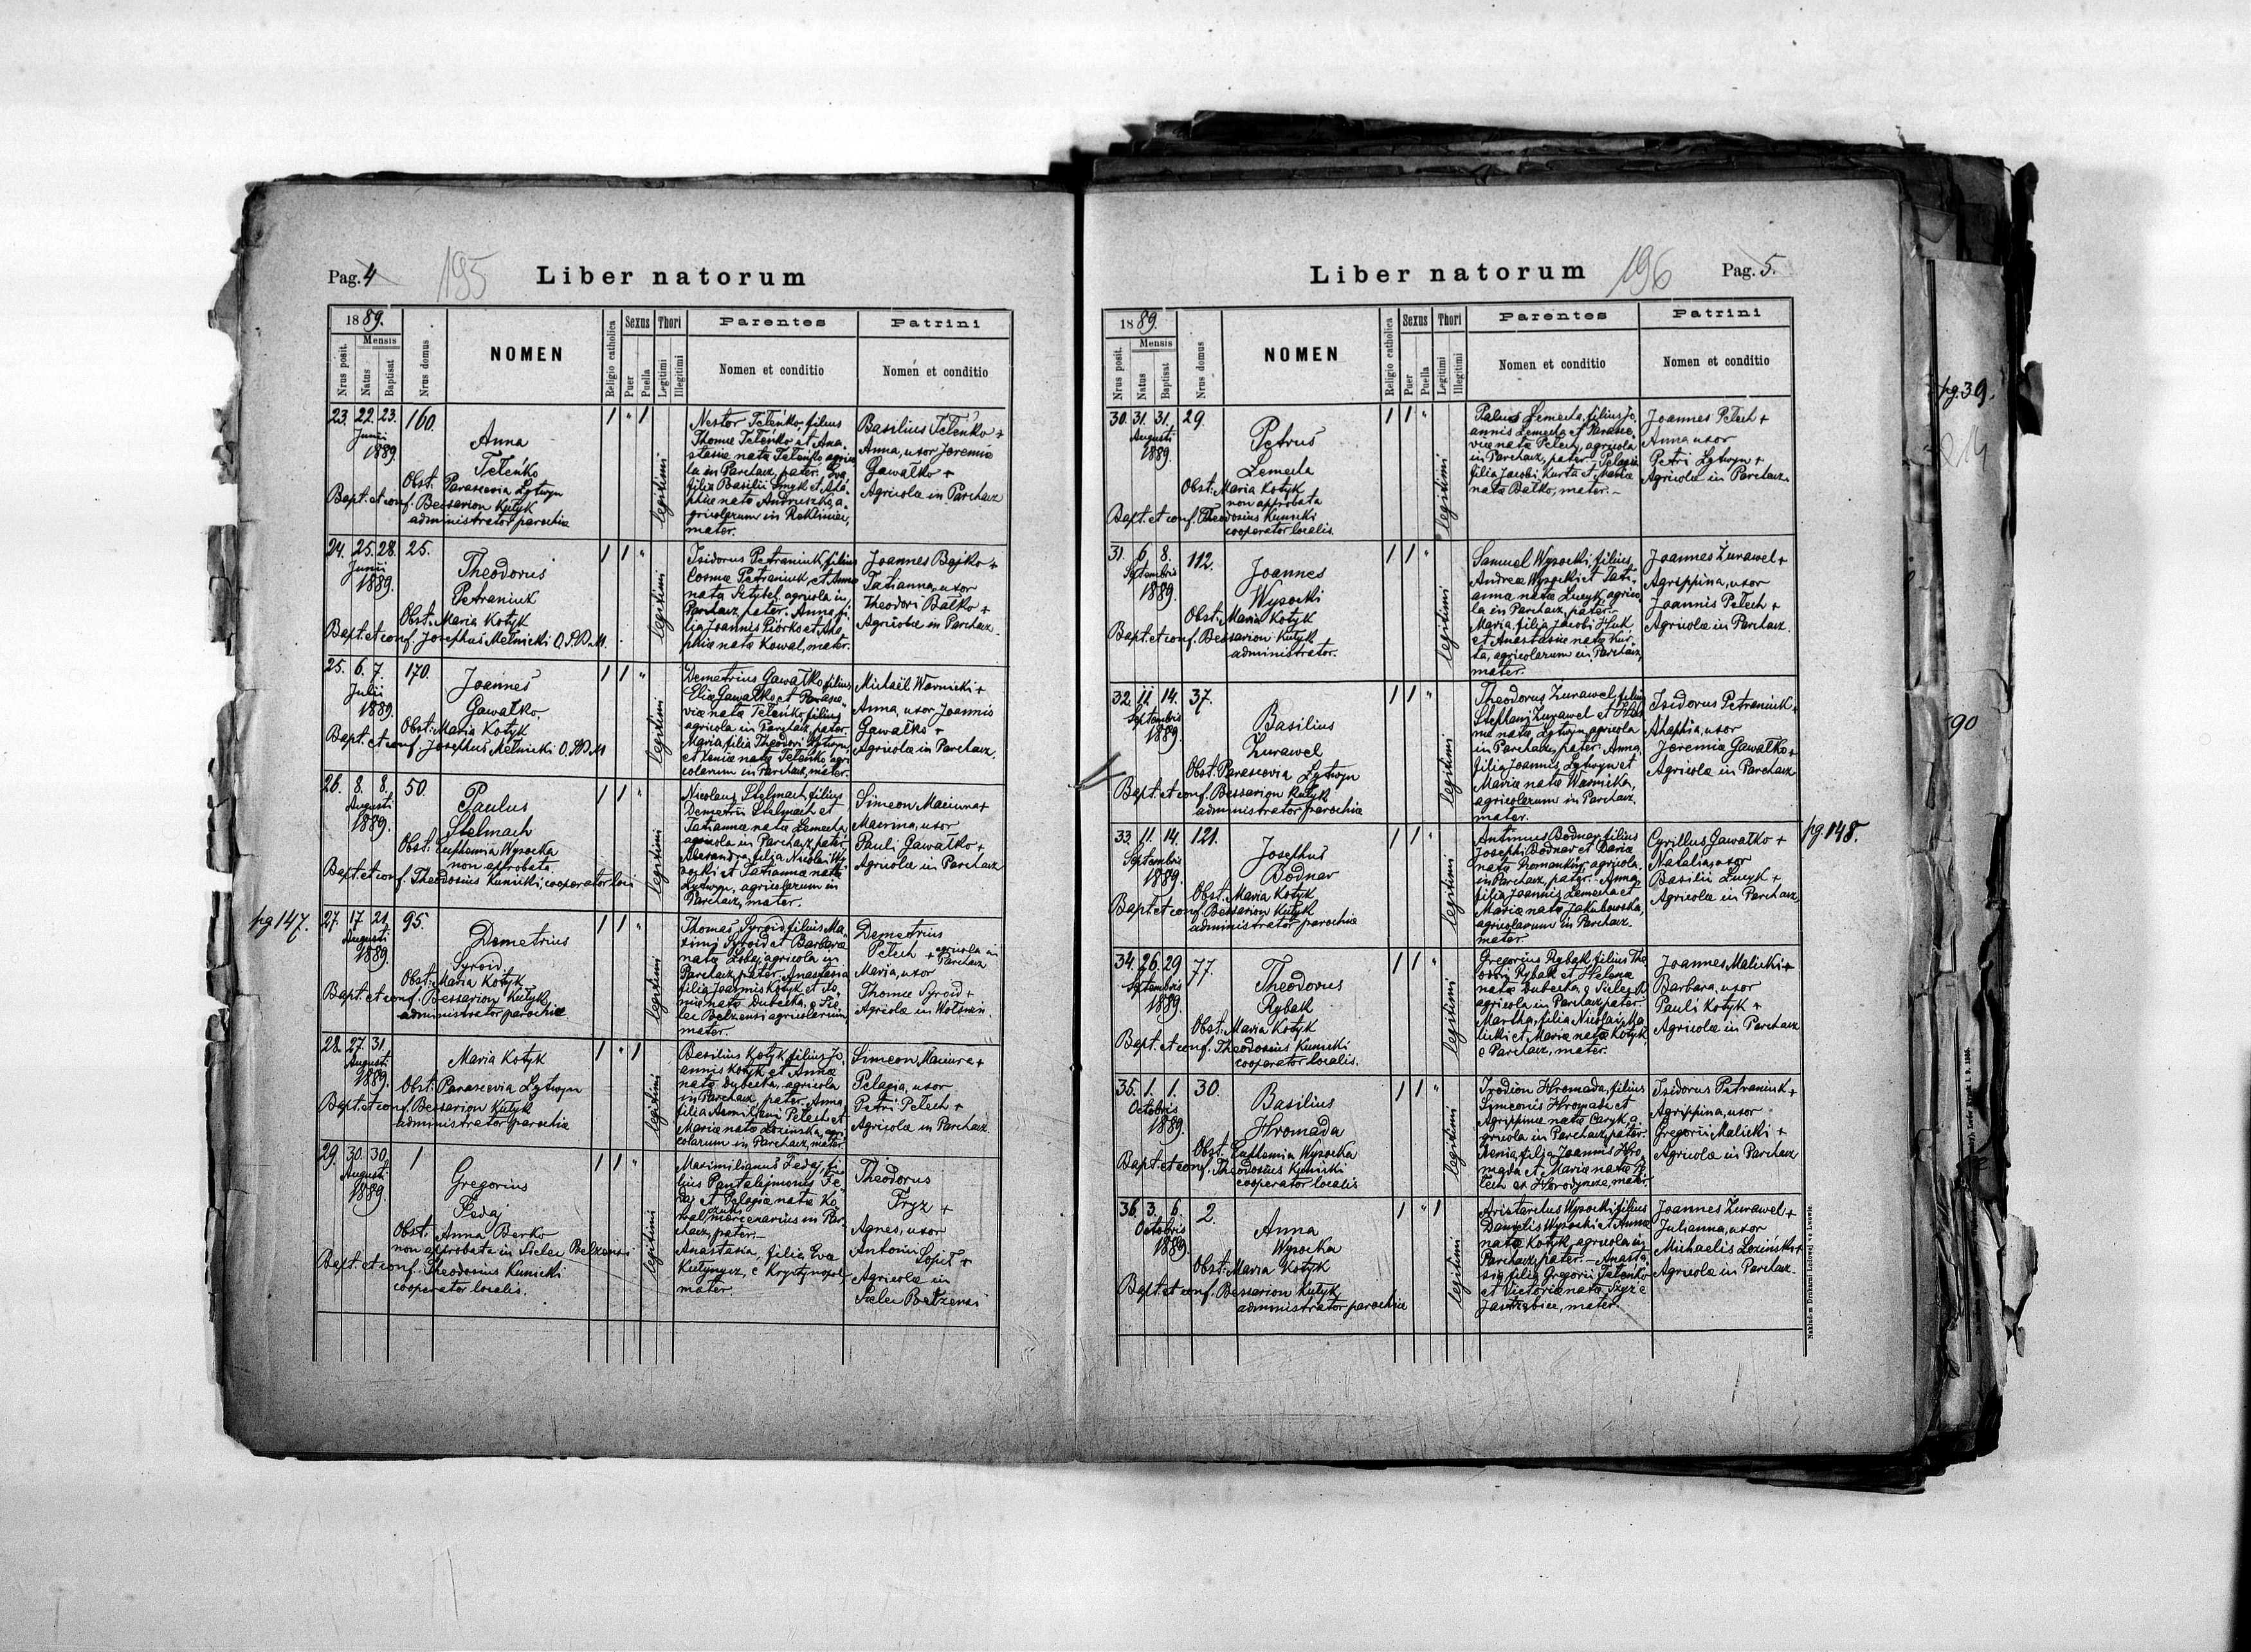 Pag. 4
195
Liber natorum
1889.
Mensis
Nrus posit.
Natus
Baptisat
Nrus domus
NOMEN
Religio catholica
Sexus
Puer
Puella
Thori
Legitimi
Illegitimi
Parentes
Nomen et conditio
Patrini
Nomen et conditio
23. 22. 23. 160.
Junii
1889.
Anna
Teleńko
Obst. Parascevia Lytwyn
Bapt. et conf. Bessarion Kutyk
administrator parochiæ
1 " 1
legitimi
Nestor Teleńko, filius
Thomæ Teleńko et Ana-
stasiæ natæ Teleńko agrico
la in Parchacz, pater. Eva
filia Basilii Smyk et Aha-
phiæ natæ Andruszko, a-
gricolarum in Rekliniec,
mater.
Basilius Teleńko +
Anna, uxor Jeremiæ
Gawałko +
Agricolæ in Parchacz
24. 25. 28. 25.
Junii
1889.
Theodorus
Petraniuk
Obst. Maria Kotyk
Bapt. et conf. Josephus Mełnicki O.S.B.M.
1 1 "
legitimi
Isidorus Petraniuk, filius
Cosmæ Petraniuk, et Annæ
natæ agricola in
Parchacz, pater. Anna, fi-
lia Joannis Piórko et Aha-
phiæ natæ Kowal, mater.
Joannes Bojko +
Tatianna, uxor
Theodori Bałko +
Agricolæ in Parchacz
25. 6. 7. 170.
Julii
1889.
Joannes
Gawałko.
Obst. Maria Kotyk
Bapt. et conf. Josephus Mełnicki O.S.B.M
1 1 "
legitimi
Demetrius Gawałko, filius
Eliæ Gawałko et Parasce-
viæ natæ Teleńko, filius
agricola in Parchacz, pater.
Maria filia Theodori Lytwyn,
et Xeniæ natæ Teleńko agri
colarum in Parchacz, mater.
Michaël Warnicki +
Anna, uxor Joannis
Gawałko +
Agricolæ in Parchacz.
26. 8. 8. 50
Augusti
1889.
Paulus
Stelmach
Obst. Euphemia Wysocka
non approbata
Bapt. et conf. Theodosius Kunicki, cooperator loci
1 1 "
legitimi
Nicolaus Stelmach, filius
Demetrii Stelmach et
Tatiannæ natæ Lemecha
agricola in Parchacz, pater.
Alexandra, filia Nicolai Wy
socki et Tatiannæ natæ
Lytwyn, agricolarum in
Parchacz, mater.
Simeon Maciura +
Macrina, uxor
Pauli Gawałko +
Agricolæ in Parchacz
pg 147.
27. 17 21. 95.
Augusti
1889.
Demetrius
Syroid
Obst. Maria Kotyk
Bapt. et conf. Bessarion Kutyk,
administrator parochiæ
1 1 "
legitimi
Thomas Syroid, filius Ma-
ximi Syroid et Barbaræ
natæ agricola in
Parchacz, pater. Anastasia
filia Joannis Kotyk et
natæ Dubecka, e Sie-
lec Bełzensi agricolarum,
mater.
Demetrius
Pełech + agricola in
Parchacz
Maria, uxor
Thomæ Syroid +
Agricolæ in Wołświn.
28. 27. 31.
Augusti
1889.
Maria Kotyk
Obst. Parascevia Lytwyn
Bapt. et conf. Bessarion Kutyk
administrator parochiæ
1 " 1
legitimi
Basilius Kotyk, filius Jo-
annis Kotyk et Annæ
natæ Dubecka, agricola
in Parchacz, pater. Anna,
filia Aemiliani Pełech et
Mariæ natæ Łozinska, agri
colarum in Parchacz, mater
Simeon Maciura +
Pelagia, uxor
Petri Pełech +
Agricolæ in Parchacz.
29. 30. 30. 1
Augusti
1889.
Gregorius
Fedaj
Obst. Anna Berko
non approbata in Sielec Bełzensi
Bapt. et conf. Theodosius Kunicki
cooperator localis.
1 1 "
legitimi
Maximilianus Fedaj, fi-
lius Pantalejmonis Fe-
daj et Pelagiæ natæ Ko
walczuk mercenarius in Par-
chacz, pater.-
Anastasia, filia Evæ
Kutynycz, e Krystynopol
mater.
Theodorus
Fryz +
Agnes, uxor
Antonii
Sopit +
Agricolæ in
Sielec Bełzensi
Liber natorum
196
Pag. 5.
1889.
Mensis
Nrus posit.
Natus
Baptisat
Nrus domus
NOMEN
Religio catholica
Sexus
Puer
Puella
Thori
Legitimi
Illegitimi
Parentes
Nomen et conditio
Patrini
Nomen et conditio
30. 31. 31. 29.
Augusti
1889.
Petrus
Lemecha
Obst. Maria Kotyk
non approbata
Bapt. et conf. Theodosius Kunicki
cooperator localis.
1 1 "
legitimi
Paulus Lemecha, filius Jo-
annis Lemecha et Parasce-
viæ natæ Pełech, agricola
in Parchacz, pater.- Pelagia
filia Jacobi Kurta et Mariæ
natæ Bałko, mater.-
Joannes Pełech +
Anna uxor
Petri Lytwyn +
Agricolæ in Parchacz.
31. 6. 8. 112.
Septembris
1889.
Joannes
Wysocki
Obst. Maria Kotyk
Bapt. et conf. Bessarion Kutyk
administrator.
1 1 "
legitimi
Samuel Wysocki, filius
Andreæ Wysocki et Tati-
annæ natæ Lucyk, agrico-
la in Parchacz, pater.-
Maria, filia Jacobi Huk
et Anastasiæ natæ Kur-
ta, agricolarum in Parchacz,
mater.
Joannes Żurawel +
Agrippina, uxor
Joannis Pełech +
Agricolæ in Parchacz.
32. 11. 14. 37.
Septembris
1889.
Basilius
Żurawel
Obst. Parascevia Lytwyn
Bapt. et conf. Bessarion Kutyk
administrator parochiæ
1 1 "
legitimi
Theodorus Żurawel, filius
Stephani Żurawel et Hele
næ natæ Lytwyn, agricola
in Parchacz, pater. Anna,
filia Joannis Lytwyn et
Mariæ natæ Warnicka,
agricolarum in Parchacz.
mater.
Isidorus Petraniuk +
Ahaphia, uxor
Jeremiæ Gawałko +
Agricolæ in Parchacz
33. 11. 14. 121.
Septembris
1889.
Josephus
Bodnar
Obst. Maria Kotyk
Bapt. et conf. Bessarion Kutyk
administrator parochiæ
1 1 "
legitimi
Antimus Bodnar, filius
Josephi Bodnar et Dariæ
natæ agricola
in Parchacz, pater.- Anna,
filia Joannis Lemecha et
Mariæ natæ Jakubowska,
agricolarum in Parchacz.
mater.
Cyrillus Gawałko +
Natalia, uxor
Basilii Lucyk +
Agricolæ in Parchacz,
pg 148.
34. 26. 29. 77.
Septembris
1889.
Theodorus
Rybak
Obst. Maria Kotyk
Bapt. et conf. Theodosius Kunicki
cooperator localis.
1 1 "
legitimi
Gregorius Rybak, filius The
odori Rybak et Helenæ
natæ Dubecka, e Sielec B
agricola in Parchacz, pater.
Martha, filia Nicolai Ma
licki et Mariæ natæ Kotyk,
e Parchacz, mater.
Joannes Malicki +
Barbara, uxor
Pauli Kotyk +
Agricolæ in Parchacz
35. 1. 1. 30.
Octobris
1889.
Basilius
Hromada
Obst. Euphemia Wysocka
Bapt. et conf. Theodosius Kunicki
cooperator localis
1 1 "
legitimi
Irodion Hromada, filius
Simeonis Hromada et
Agrippinæ natæ Caryk, a-
gricola in Parchacz, pater.
Xenia, filia Joannis Hro-
mada et Mariæ natæ Pe
łech ex Horodyszcze, mater.
Isidorus Petraniuk +
Agrippina, uxor
Gregorii Malicki +
Agricolæ in Parchacz
36. 3. 6. 2.
Octobris
1889.
Anna
Wysocka
Obst. Maria Kotyk
Bapt. et conf. Bessarion Kutyk
administrator parochiæ
1 " 1
legitimi
Aristarchus Wysocki, filius
Danielis Wysocki et Annæ
natæ Kotyk, agricola in
Parchacz, pater.- Anasta-
sia, filia Gregorii Teleńko
et Victoriæ natæ Szyć e
Jastrzębice, mater.
Joannes Żurawel +
Julianna, uxor
Michaelis Łozińsk +
Agricolæ in Parchacz.
Nakładem Drukarni Ludowej we Lwowie.
pg. 39.
90